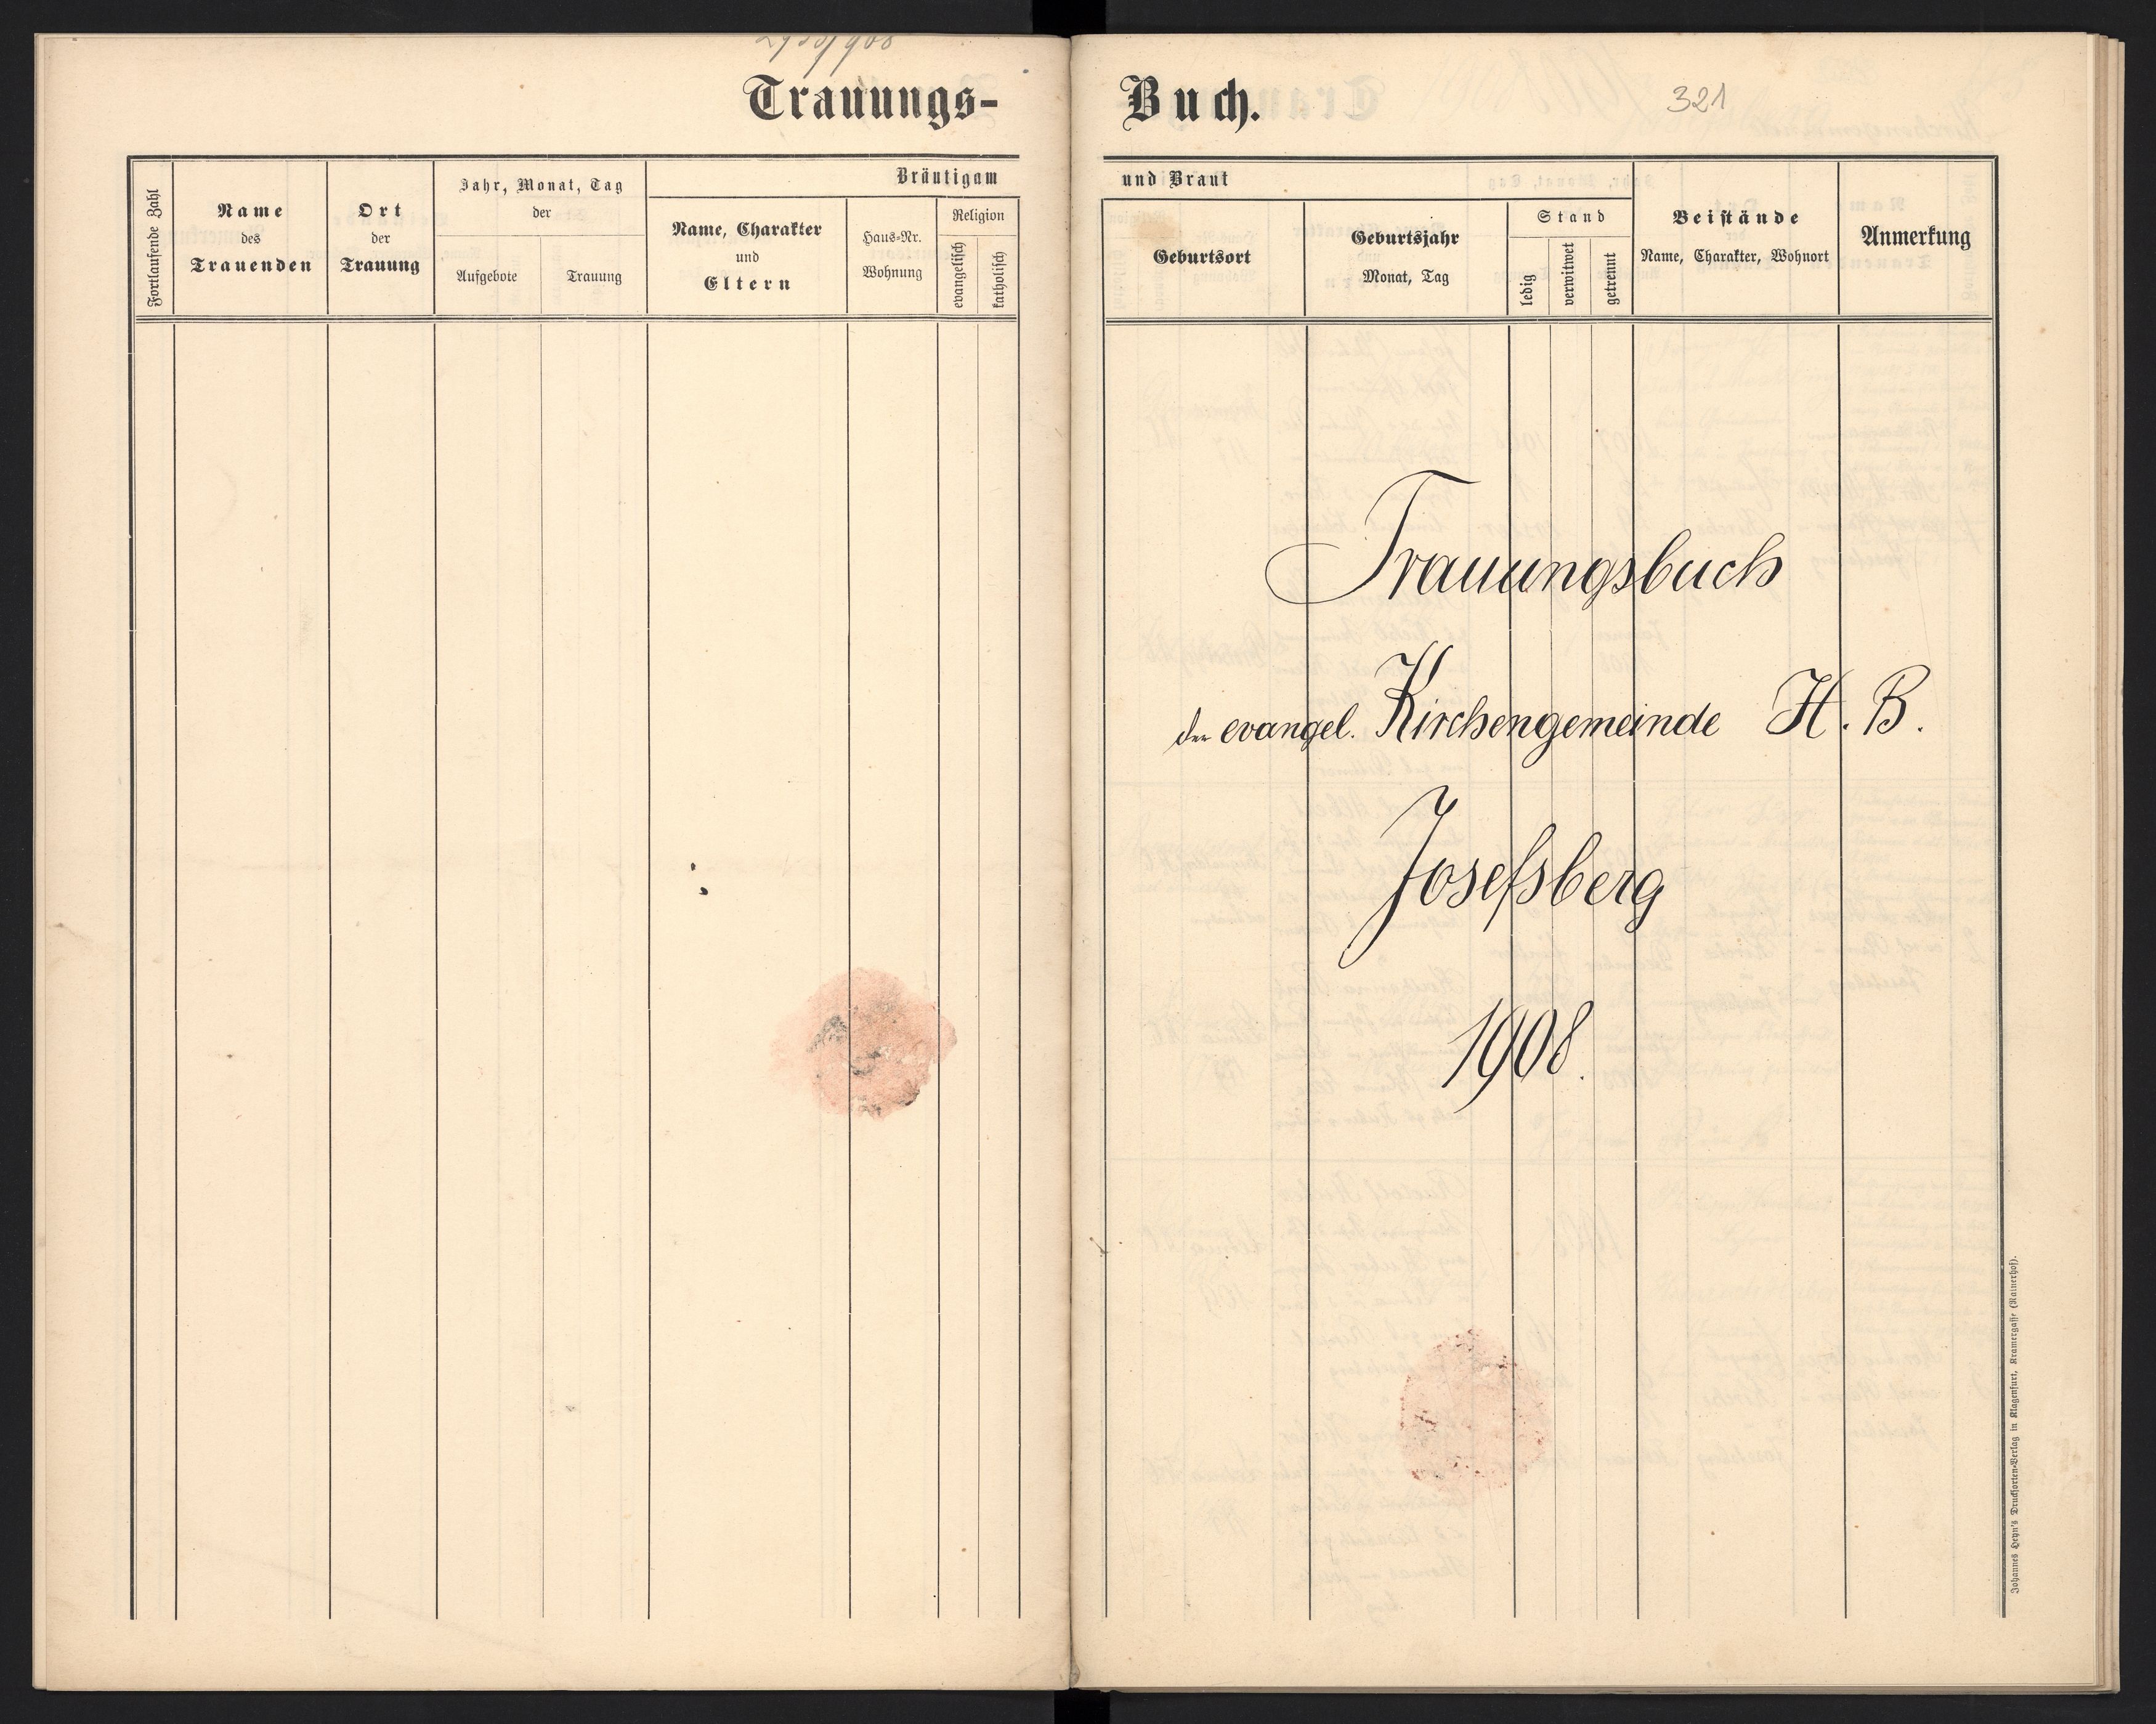 Trauungs-
Fortlaufende Zahl
Name
des
Trauenden
Ort
der
Trauung
Jahr, Monat, Tag
der
Aufgebote
Trauung
Bräutigam
Name, Charakter
und
Eltern
Haus-Nr.
Wohnung
Religion
evangelisch
katholisch
Buch.
321
und Braut
Geburtsort
Geburtsjahr
Monat, Tag
Stand
ledig
verwitwet
getrennt
Beistände
Name, Charakter, Wohnort
Anmerkung
Trauungsbuch
der evangel. Kirchengemeinde H. B.
Josefsberg
1908.
Johannes Heyn's Drucksorten-Verlag in Klagenfurt, Kramergasse (Rainerhof).